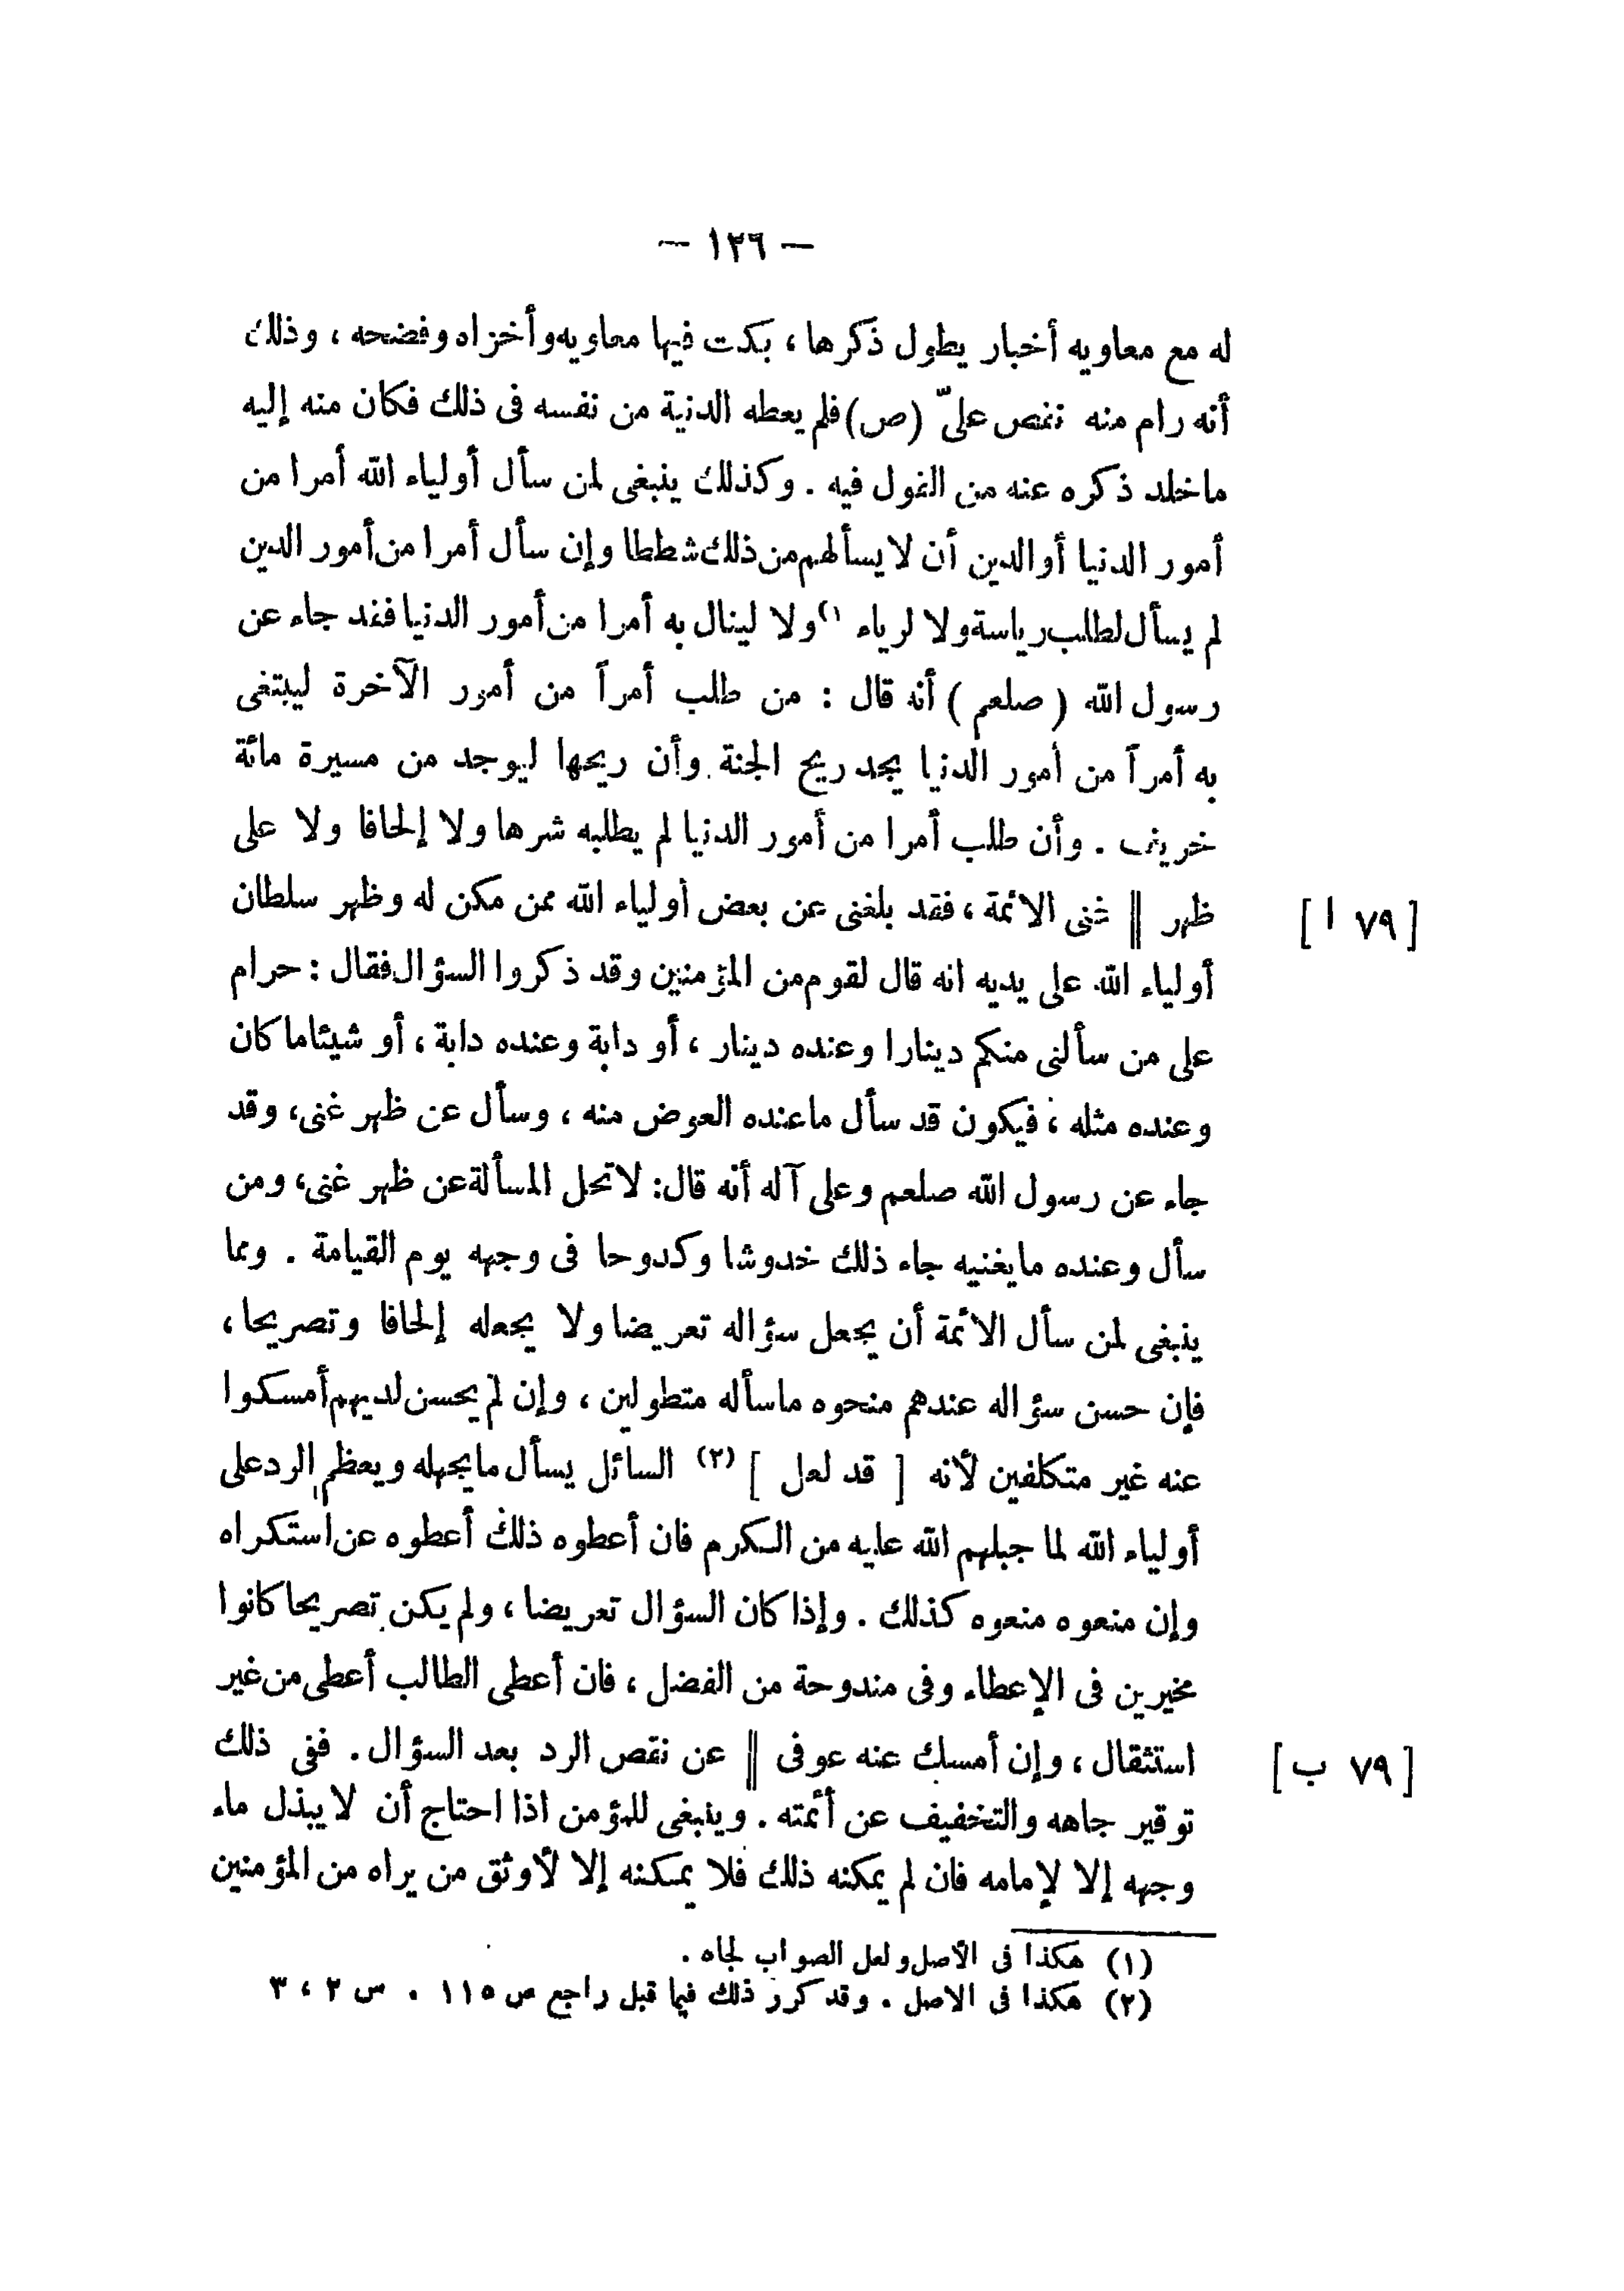 — ١٢٦ —
له مع معاويه أخبار يطول ذكرها ، بكت فيها معاويه وأخزاه وفضحه ، وذلك
أنه رام منه نقص علىّ (ص) فلم يعطه الدنية من نفسه فى ذلك فكان منه إليه
ماخلد ذكره عنه من القول فيه . وكذلك ينبغى لمن سأل أولياء الله أمرا من
أمور الدنيا أوالدين أن لا يسألهم من ذلك شططا وإن سأل أمرا من أمور الدين
لم يسأل لطلب رياسة ولا لرياء (١) ولا لينال به أمرا من أمور الدنيا فقد جاء عن
رسول الله ( صلعم ) أنه قال : من طلب أمراً من أمور الآخرة ليبتغى
به أمراً من أمور الدنيا يجد ريح الجنة وأن ريحها ليوجد من مسيرة مائة
خريف . وأن طلب أمرا من أمور الدنيا لم يطلبه شرها ولا إلحافا ولا على
ظهر ‖ غنى الائمة ، فقد بلغنى عن بعض أولياء الله ممن مكن له وظهر سلطان [ ٧٩ ا ]
أولياء الله على يديه انه قال لقوم من المؤمنين وقد ذكروا السؤال فقال : حرام
على من سألنى منكم دينارا وعنده دينار ، أو دابة وعنده دابة ، أو شيئا ما كان
وعنده مثله ، فيكون قد سأل ماعنده العوض منه ، وسأل عن ظهر غنى، وقد
جاء عن رسول الله صلعم وعلى آله أنه قال: لاتحل المسألة عن ظهر غنى، ومن
سأل وعنده مايغنيه جاء ذلك خدوشا وكدوحا فى وجهه يوم القيامة . ومما
ينبغى لمن سأل الائمة أن يجعل سؤاله تعريضا ولا يجعله إلحافا وتصريحا ،
فإن حسن سؤاله عندهم منحوه ماسأله متطولين ، وإن لم يحسن لديهم أمسكوا
عنه غير متكلفين لأنه [ قد لعل ] (٢) السائل يسأل مايجهله ويعظم الرد على
أولياء الله لما جبلهم الله عليه من الكرم فان أعطوه ذلك أعطوه عن استكراه
وإن منعوه منعوه كذلك . وإذا كان السؤال تعريضا ، ولم يكن تصريحا كانوا
مخيرين فى الإعطاء وفى مندوحة من الفضل ، فان أعطى الطالب أعطى من غير
استثقال ، وإن أمسك عنه عوفى ‖ عن نقص الرد بعد السؤال . ففى ذلك [ ٧٩ ب ]
توقير جاهه والتخفيف عن أئمته . وينبغى للمؤمن اذا احتاج أن لا يبذل ماء
وجهه إلا لإمامه فان لم يمكنه ذلك فلا يمكنه إلا لأوثق من يراه من المؤمنين
(١) هكذا فى الأصل ولعل الصواب لجاه .
(٢) هكذا فى الاصل . وقد كرر ذلك فيما قبل راجع ص ١١٥ . س ٢ ، ٣